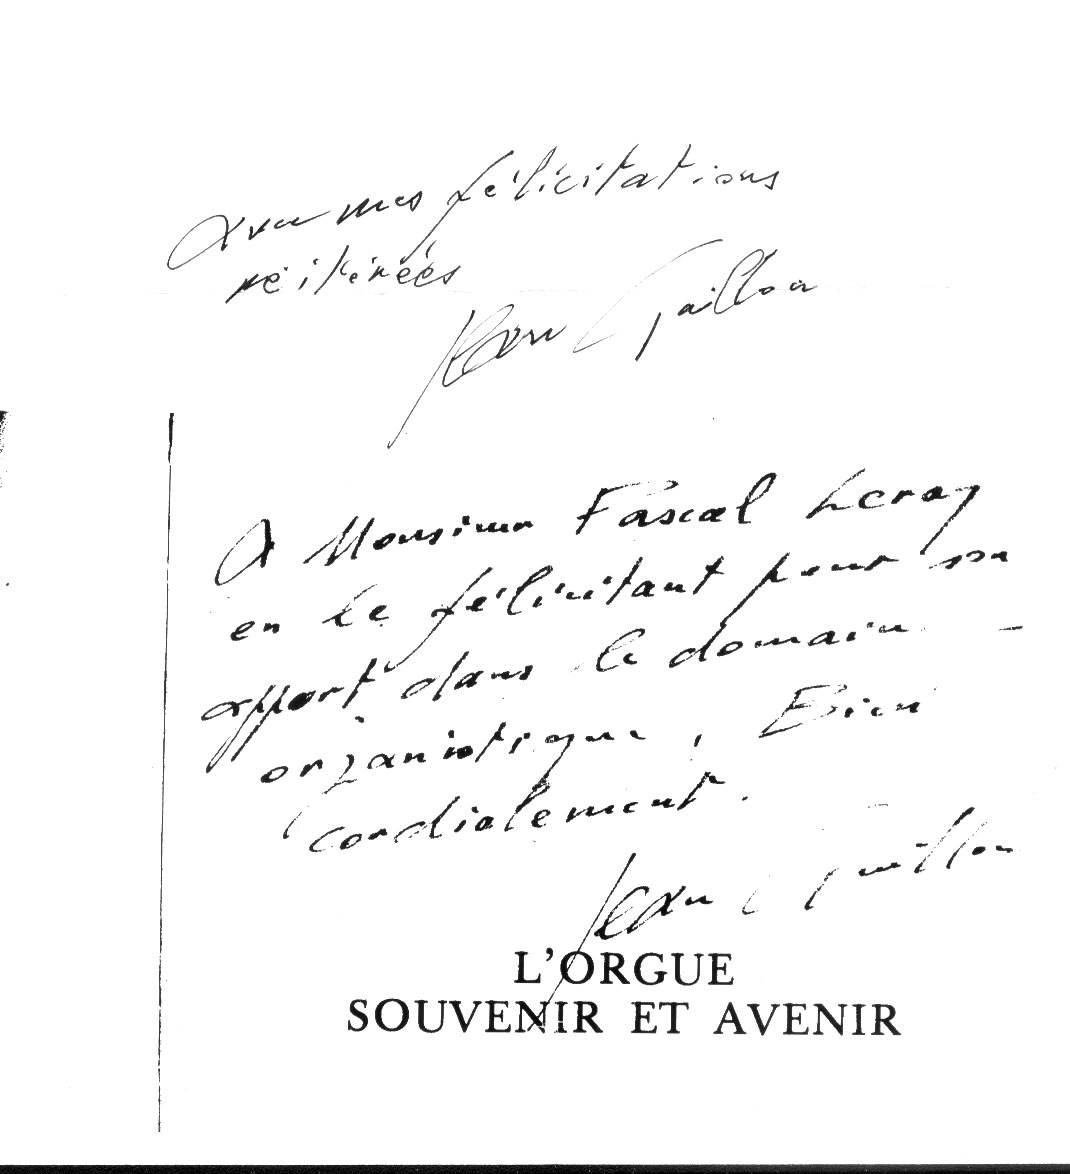 avec mes félicitations
réitérées
Jean Guillou
A Monsieur Pascal Leray
en le félicitant pour son
apport dans le domaine
organistique, Bien
cordialement.
Jean Guillou
L'ORGUE
SOUVENIR ET AVENIR